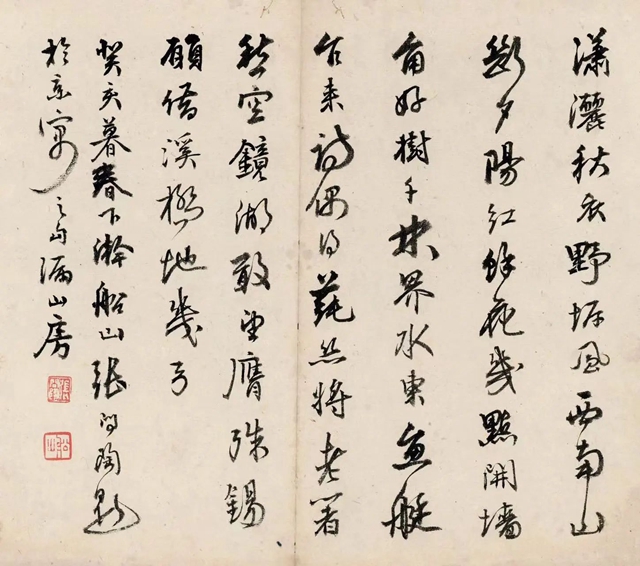 瀟灑秋衣野風西南山
斷夕陽紅餘花幾點開墻
角好樹千株界水東魚艇
乍來詩偶得蓴絲將老箸
愁空鏡湖敢望膺殊錫
願借溪橋地幾弓
癸亥暮春下澣船山張問陶題
於京寓之句漏山房